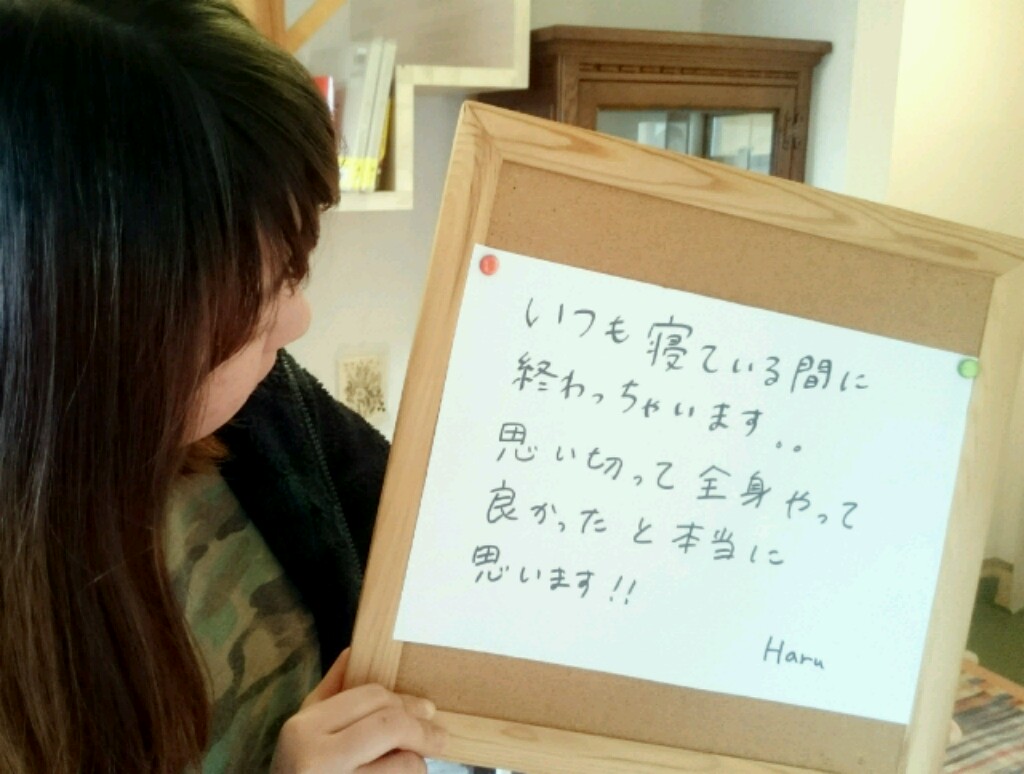 いつも寝ている間に
終わっちゃいます..
思い切って全身やって
良かったと本当に
思います!!
Haru